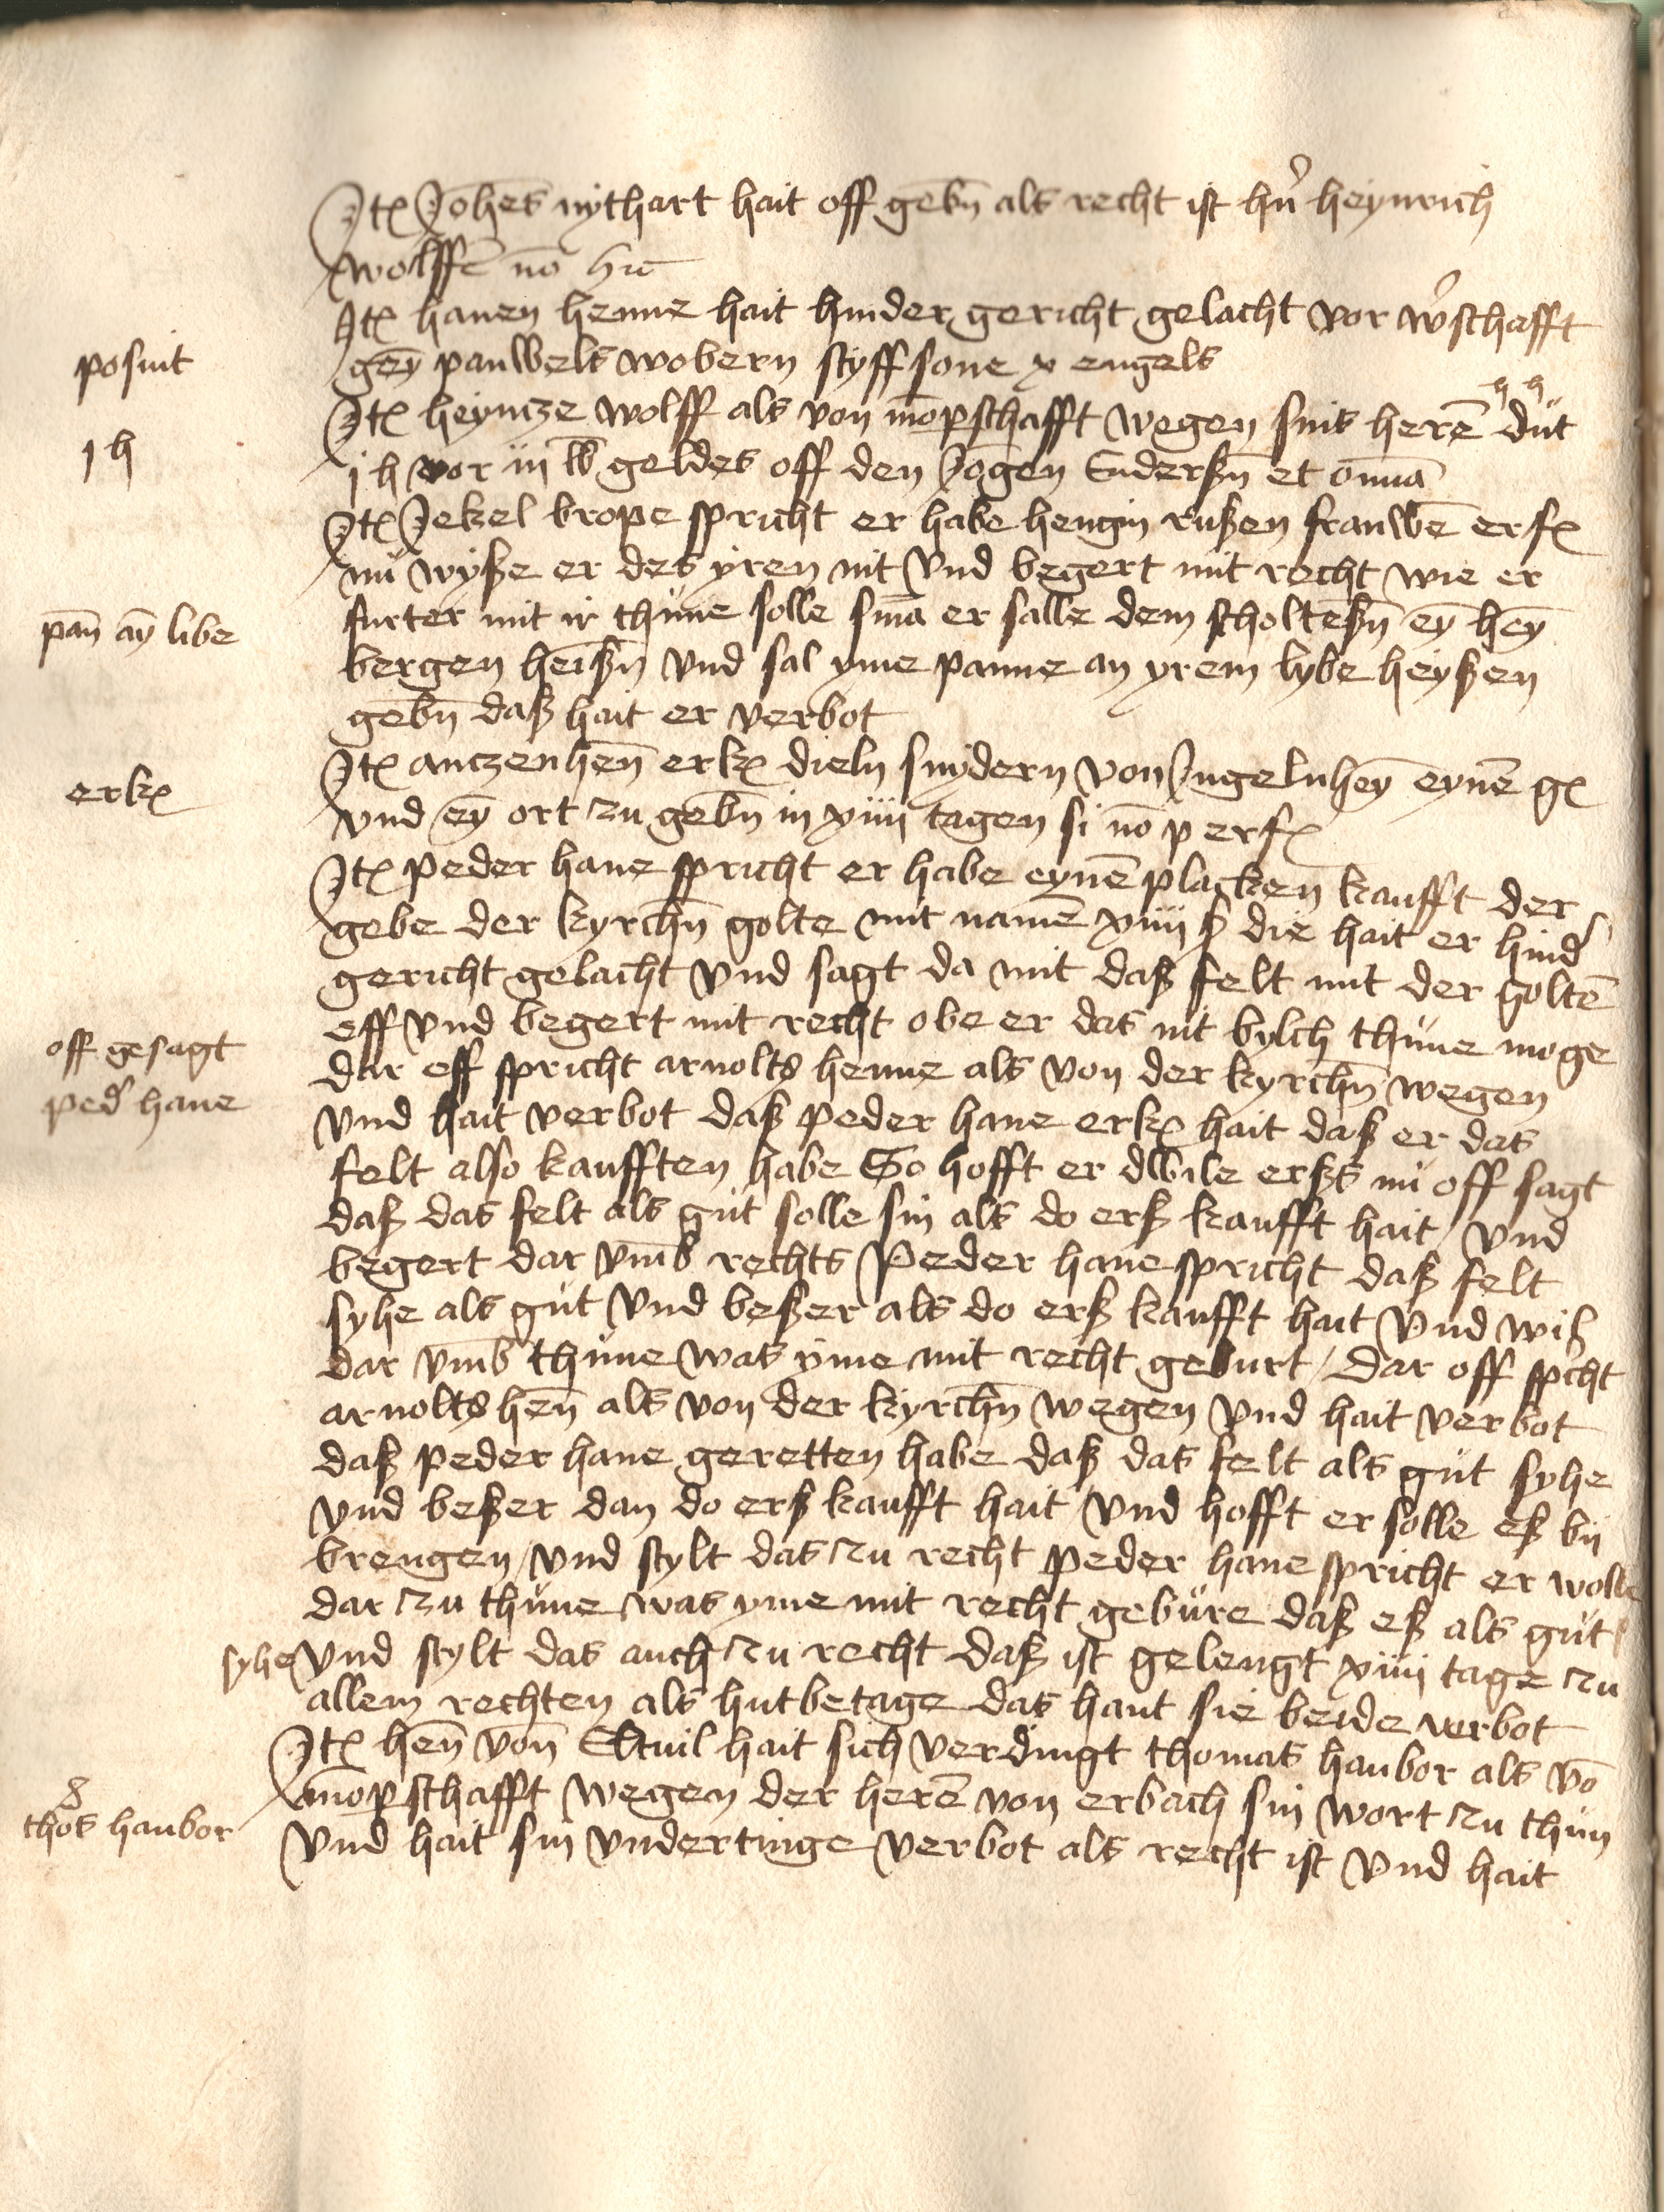 Itē Johēs nythart hait off gebn̄ als recht ist hn̄ heynrich
wolffē nō hic
Itē hanen henne hait hinder gericht gelacht vor wschafft
posuit
gey̅ pauwels wobern styff sone x engels
Itē heyncze wolff als von mōpschafft wegen sins herē dut
j h
j h vor iij lb geldes off den Jōgen Enderßn̄ et om̄ia
Itē Jekel drope spricht er habe hengin rußen frauwē erfē
nů wyße er des yren nit vnd begert mit recht wie er
furter mit ir thune solle sm̄a er salle dem scholteßn̄ ey̅ hey̅
pan̄ ay̅ libe
bergen heißn̄ vnd sal yme panne an yrem lybe heyßen
gebn̄ daß hait er verbot
Itē anczenhen̄ erkē dieln snydern von Jngelnhey̅ eynē gē
erkē
vnd ey̅ ort zu gebn̄ in xiiij tagen si nō p erfē
Itē peder hane spricht er habe eynē placken kaufft der
gebe der kyrchn̄ golte mit namē xiiij ß die hait er hind
gericht gelacht vnd sagt da mit daß felt mit der goltē
off gesagt
eff vnd begert mit recht obe er das nit bylch thůne moge
dar eff spricht arnolts henne als von der kyrchn̄ wegen
ped hane
vnd hait verbot daß peder hane erkē hait daß er das
felt also kaufften habe So hofft er dwile erßs nů off sagt
daß das felt als gut solle sin als do erß kaufft hait / vnd
begert dar vmb rechts Peder hane spricht daß felt
syhe als gut vnd beßer als do erß kaufft hait vnd wil
dar vmb thůne was yme mit recht geburt / Dar off spcht
arnolts hen̄ als von der kyrchn̄ wegen vnd hait verbot
daß peder hane geretten habe daß das felt als gut syhe
vnd beßer dan do erß kaufft hait vnd hofft er solle eß bij
brengen / vnd stylt das zu recht peder hane spricht er wolle
dar zu thůne was yme mit recht gebůre daß eß als gut
syhe vnd stylt das auch zu recht daß ist gelengt xiiij tage zu
allem rechten als hutbetage das hant sie beide verbot
Itē hen̄ von̄ Eltuil hait sich verdingt thomas haubor als vō
mōpschafft wegen der herē von erbach sin wort zu thun
thōs haubor
vnd hait sin vndertinge verbot als recht ist vnd hait